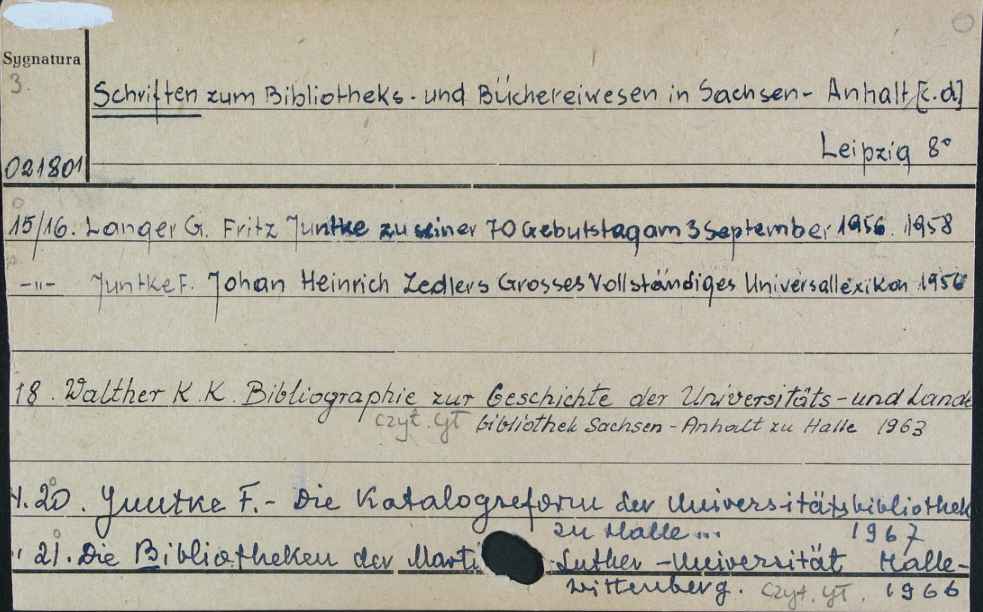 Sygnatura
3.
Schriften zum Bibliotheks- und Büchereiwesen in Sachsen- Anhalt [c.d]
Leipzig 8°
021801
15/16. Langer G. Fritz Juntke zu seiner 70 Gebutstag am 3 September 1956. 1958
-"- Juntke F. Johan Heinrich Zedlers Grosses Vollständiges Universallexikon 1956
18. Walther K. K. Bibliographie zur Geschichte der Universitäts-und Lande
czyt. yt bibliothek Sachsen-Anhalt zu Halle 1963
20. Juntke F.- Die Katalogreform der Universitätsbibliothek
zu Halle... 1967
" 21. Die Bibliotheken der Marti Luther-Universität Halle-
Wittenberg. czyt. yt. 1966